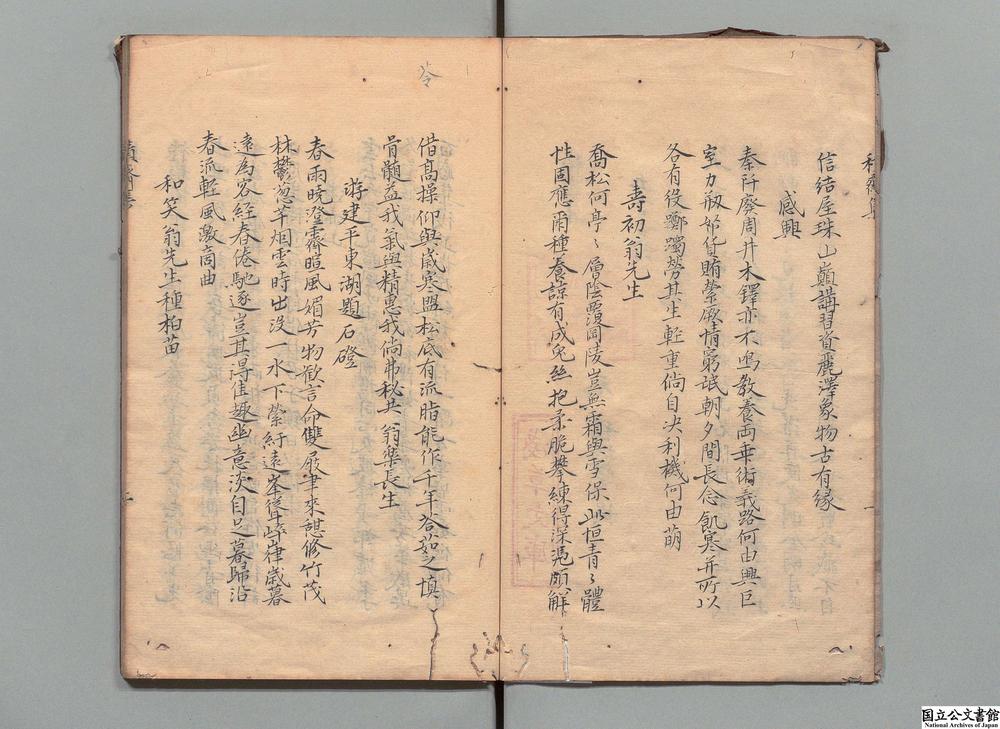 信結屋珠山巔講習資麗澤象物古有緣
感興
秦阡廢周井木鐸亦不鳴教養両乖術義路何由興巨
室力股貨賄縈厥情窮氓朝夕間長念飢寒并所以
各有役躑躅勞其生軽重倘自决利機何由萌
壽初翁先生
喬松何亭〻層陰覆岡陵豈無霜與雪保此恒青〻體
性固應爾種養諒有成兔絲抱柔脆攀練得深憑頗解
苓
借高操仰與歲寒盟松底有流脂能作千年苓茹之填
骨髓益我氣與精惠我倘弗秘共翁樂長生
游建平東湖題石磴
春雨晓澄霽暄風媚芳物歡言命雙屐聿來憩修竹茂
林鬱葱芊烟雲時出没一水下縈紆遠峯後崒嵂歲暮
遠為客經春倦馳逐豈其得佳趣幽意淡自足暮歸沿
春流軽風激商曲
和笑翁先生種柏苗
国立公文書館
National Archives of Japan